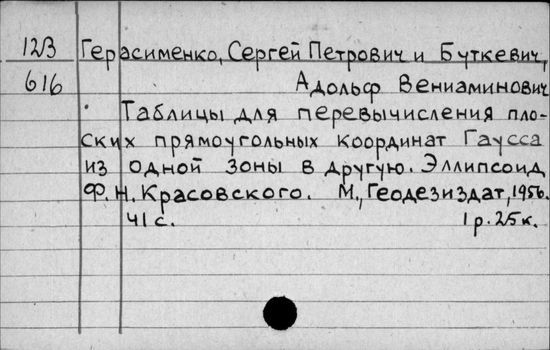 12В Герасименко, Сергей Петрович и Буткевич,
616 Адольф Вениаминович
Таблицы для перевычисления пло-
ских прямоугольных координат Гаусса
из одной зоны в другую. Эллипсоид
Ф. Н. Красовского. М., Геодезиздат, 1956.
41 с. 1 р. 25 к.